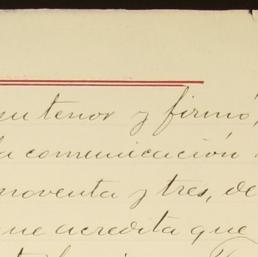 su tenor y firmó,
la comunicación
noventa y tres, de
que acredita que